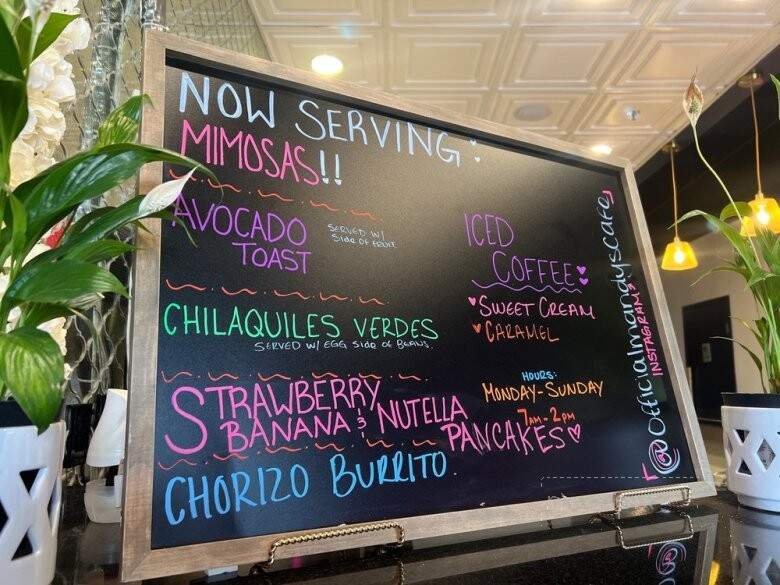 NOW SERVING:
MIMOSAS!!
AVOCADO
TOAST
SERVED W/
SIDE OF FRUIT
CHILAQUILES VERDES
SERVED W/ EGG SIDE OF BEANS.
STRAWBERRY
BANANA & NUTELLA
PANCAKES♥
CHORIZO BURRITO.
ICED
COFFEE:
♥SWEET CREAM
♥CARAMEL
HOURS:
MONDAY-SUNDAY
7AM-2PM
@officialmandyscafe
INSTAGRAM